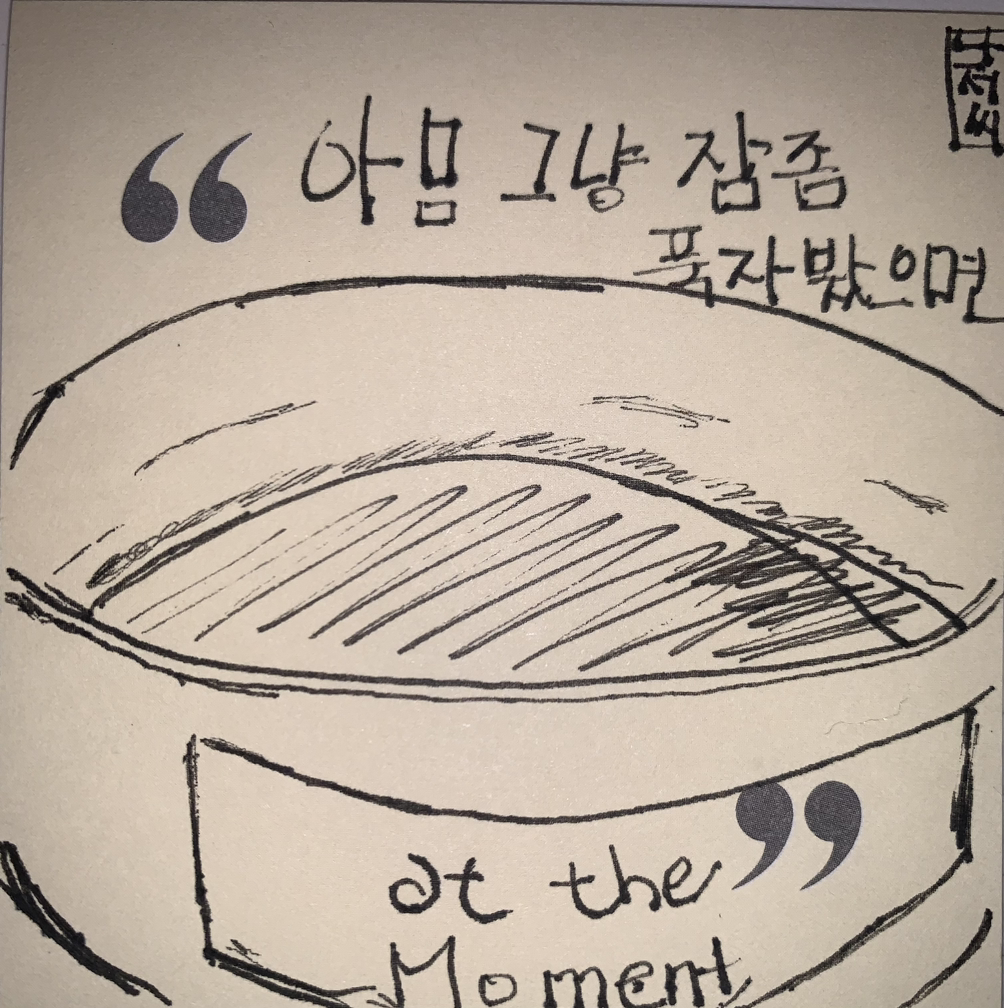 “ 아몸 그냥 잠좀
푹자봤으면
at the ”
Moment